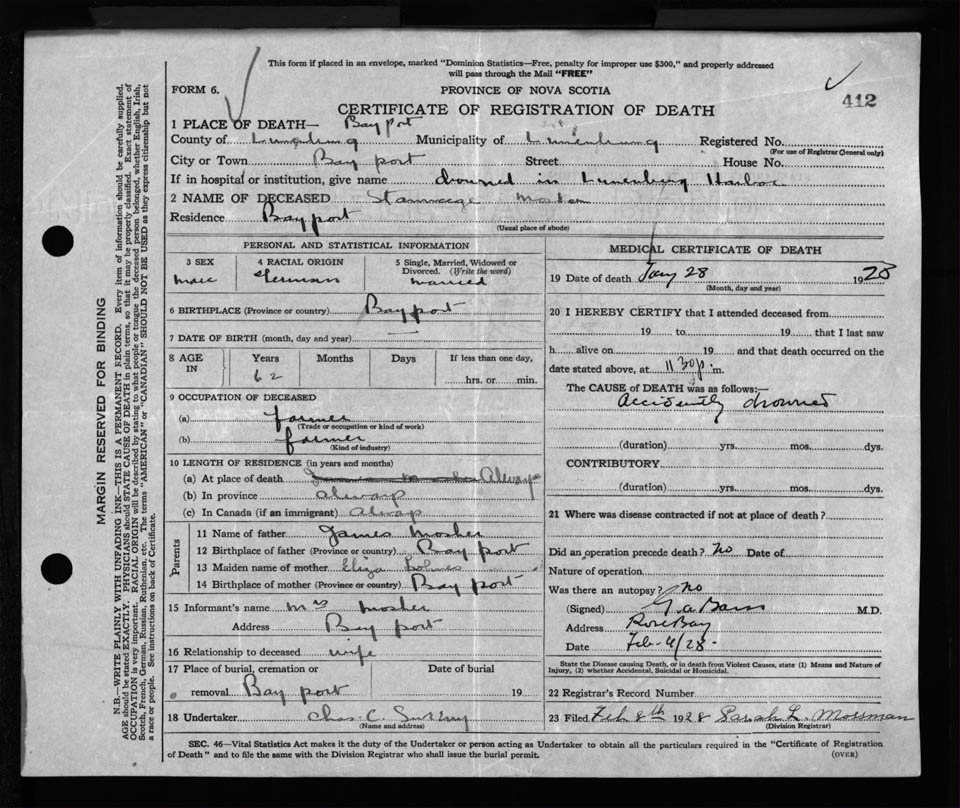 This form if placed in an envelope, marked "Dominion Statistics—Free, penalty for improper use $300," and properly addressed
will pass through the Mail "FREE"
FORM 6.
PROVINCE OF NOVA SCOTIA
412
CERTIFICATE OF REGISTRATION OF DEATH
1 PLACE OF DEATH— Bayport
County of Lunenburg Municipality of Lunenburg Registered No.
(For use of Registrar General only)
City or Town Bay port Street House No.
If in hospital or institution, give name drowned in Lunenburg Harbor
2 NAME OF DECEASED
Residence Bay port
(Usual place of abode)
PERSONAL AND STATISTICAL INFORMATION
3 SEX 4 RACIAL ORIGIN 5 Single, Married, Widowed or
Divorced. (Write the word)
male German married
6 BIRTHPLACE (Province or country) Bayport
7 DATE OF BIRTH (month, day and year)
8 AGE IN Years Months Days If less than one day,
62 hrs. or min.
9 OCCUPATION OF DECEASED
(a) farmer
(Trade or occupation or kind of work)
(b) farmer
(Kind of industry)
10 LENGTH OF RESIDENCE (in years and months)
(a) At place of death Always
(b) In province always
(c) In Canada (if an immigrant) Always
Parents
11 Name of father James Mosher
12 Birthplace of father (Province or country) Bay port
13 Maiden name of mother Eliza
14 Birthplace of mother (Province or country) Bay port
15 Informant's name Mrs Mosher
Address Bay port
16 Relationship to deceased wife
17 Place of burial, cremation or Date of burial
removal Bay port 19
18 Undertaker Chas. C.
(Name and address)
MEDICAL CERTIFICATE OF DEATH
19 Date of death Jany 28 1928
(Month, day and year)
20 I HEREBY CERTIFY that I attended deceased from
19 to 19 that I last saw
h alive on 19 and that death occurred on the
date stated above, at 11 30 p. m.
The CAUSE of DEATH was as follows:—
Accidently drowned
(duration) yrs. mos. dys.
CONTRIBUTORY
(duration) yrs. mos. dys.
21 Where was disease contracted if not at place of death?
Did an operation precede death? No Date of
Nature of operation
Was there an autopsy? No
(Signed) G. A. M.D.
Address Rose Bay
Date Feb. 4/28
State the Disease causing Death, or in death from Violent Causes, state (1) Means and Nature of
Injury, (2) whether Accidental, Suicidal or Homicidal.
22 Registrar's Record Number
23 Filed Feb 8th 1928 Sarah L. Mossman
(Division Registrar)
SEC. 46—Vital Statistics Act makes it the duty of the Undertaker or person acting as Undertaker to obtain all the particulars required in the "Certificate of Registration
of Death" and to file the same with the Division Registrar who shall issue the burial permit.
(OVER)
MARGIN RESERVED FOR BINDING
N.B.—WRITE PLAINLY WITH UNFADING INK—THIS IS A PERMANENT RECORD. Every item of information should be carefully supplied.
AGE should be stated EXACTLY. PHYSICIANS should STATE CAUSE OF DEATH in plain terms, so that it may be properly classified. Exact statement of
OCCUPATION is very important. RACIAL ORIGIN will be described by stating to what people or tongue the deceased person belonged, whether English, Irish,
Scotch, French, German, Russian, Ruthenian, etc. The terms "AMERICAN" or "CANADIAN" SHOULD NOT BE USED as they express citizenship but not
a race or people. See instructions on back of Certificate.